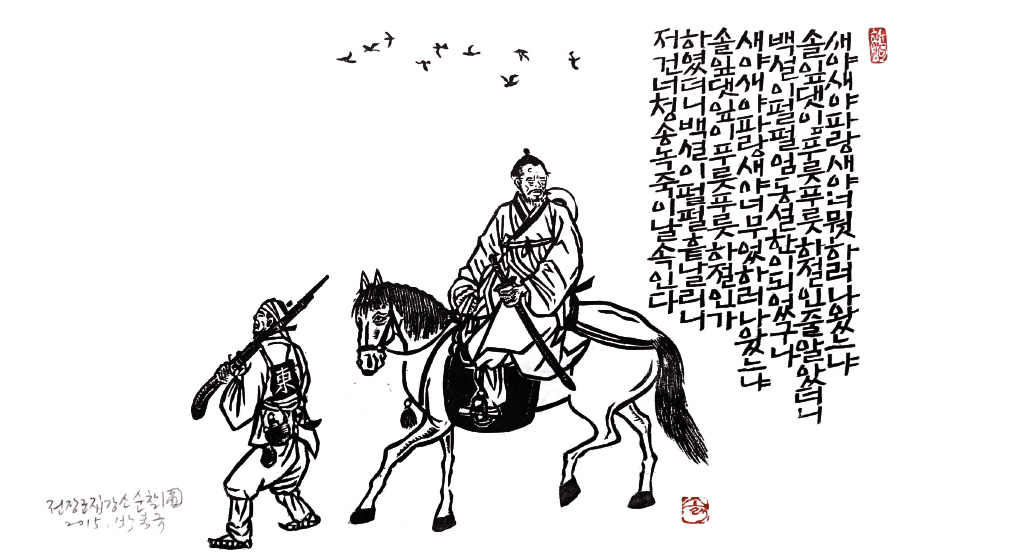 새야새야파랑새야너뭣하러나왔느냐
솔잎댓잎푸릇푸릇하절인줄알았더니
백설이펄펄엄동설한이되었구나
새야새야파랑새야너무엇하러나왔느냐
솔잎댓잎이푸릇푸릇하절인가
하였더니백설이펄펄흩날리니
저건너청송녹죽이날속인다
東
전장군집강소순찰圖
2015. 박홍규